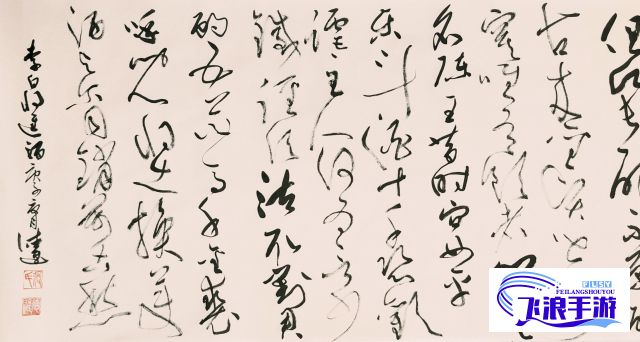 但愿长醉不愿醒
古来圣贤皆
寂寞惟有饮者留
名陈王昔时宴平
乐斗酒十千恣欢
谑主人何为言少
钱径须沽取对君
酌五花马千金裘
呼儿将出换美
酒与尔同销万古愁
李白将进酒
FLSY
FEILANGSHOUYOU
飞浪手游